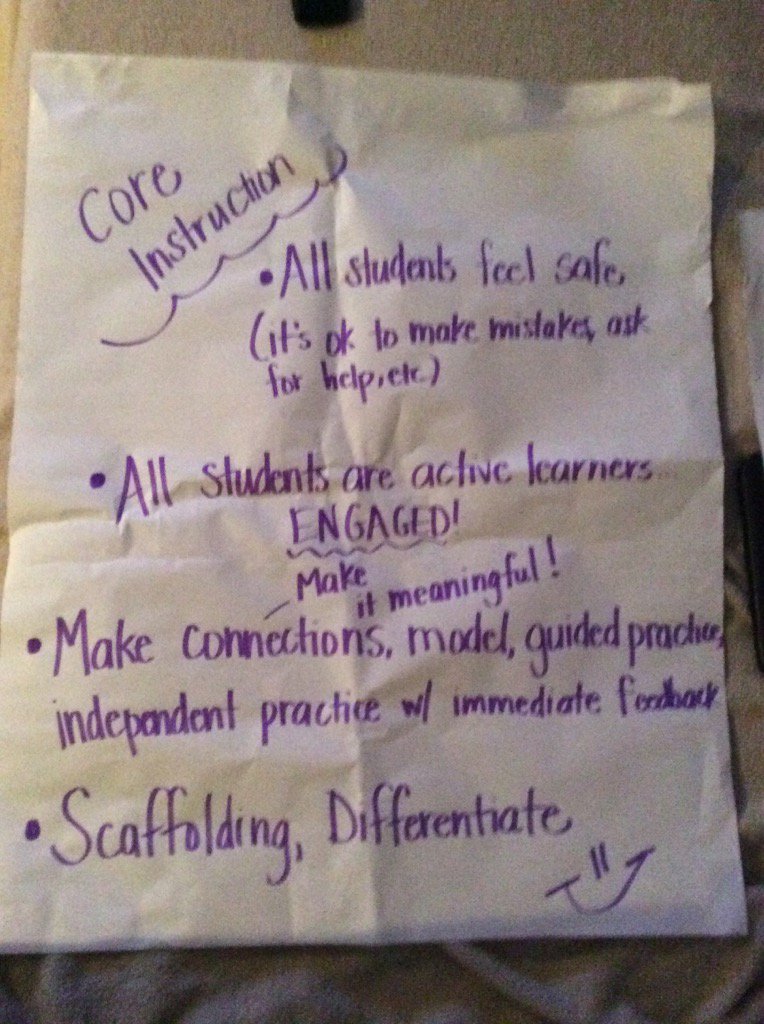 Core
Instruction
• All students feel safe
(it's ok to make mistakes, ask
for help, etc.)
• All students are active learners
ENGAGED!
Make
it meaningful!
• Make connections, model, guided practice,
independent practice w/ immediate feedback
• Scaffolding, Differentiate